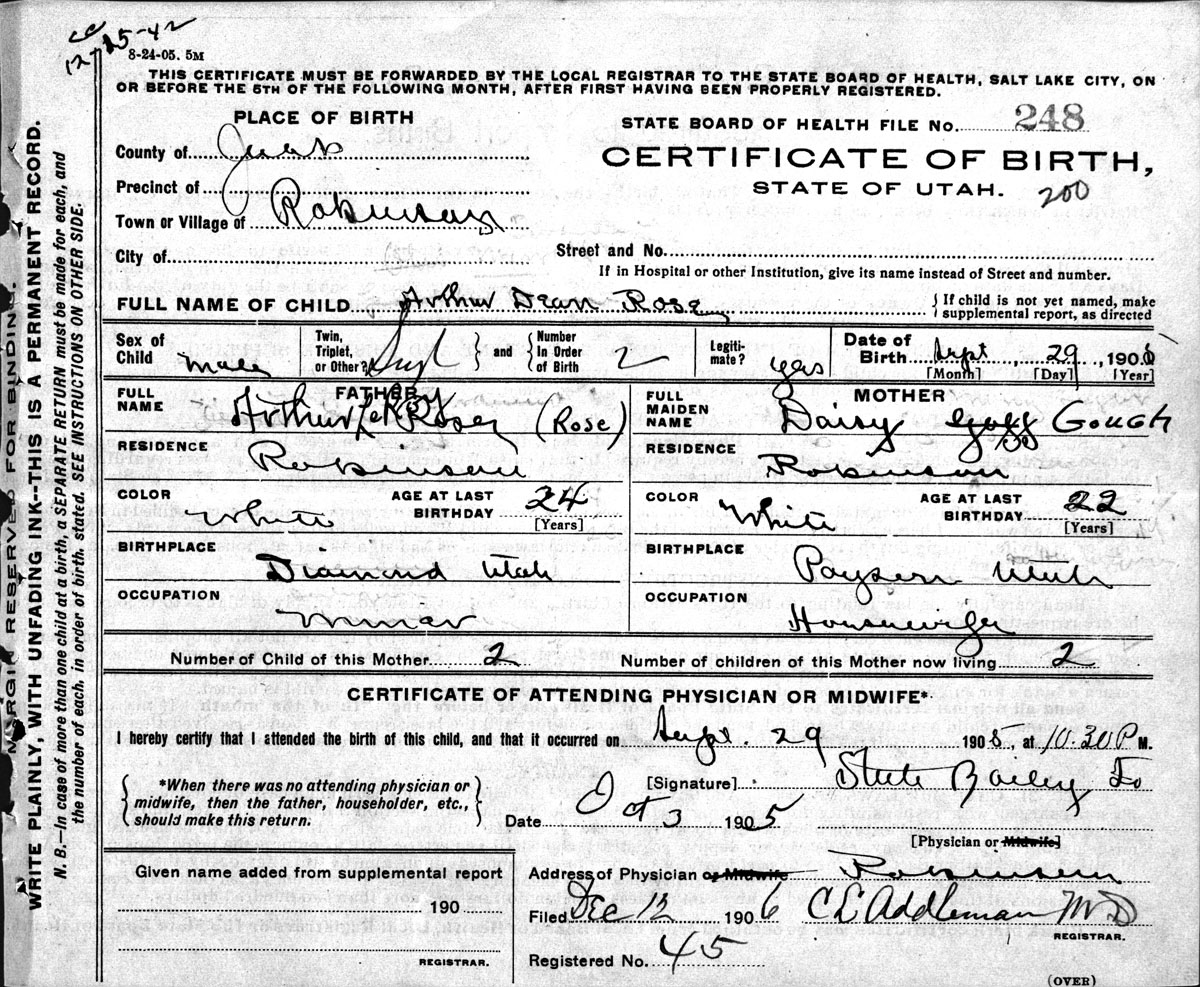 12-25-42
8-24-05. 5M
THIS CERTIFICATE MUST BE FORWARDED BY THE LOCAL REGISTRAR TO THE STATE BOARD OF HEALTH, SALT LAKE CITY, ON
OR BEFORE THE 5TH OF THE FOLLOWING MONTH, AFTER FIRST HAVING BEEN PROPERLY REGISTERED.
PLACE OF BIRTH
STATE BOARD OF HEALTH FILE No. 248
County of Juab
CERTIFICATE OF BIRTH,
Precinct of
STATE OF UTAH. 200
Town or Village of Robinson
City of
Street and No.
If in Hospital or other Institution, give its name instead of Street and number.
FULL NAME OF CHILD Arthur Dean Rose
{ If child is not yet named, make
supplemental report, as directed
Sex of Child Male
Twin, Triplet, or Other?
and
Number In Order of Birth 2
Legiti-mate? yes
Date of Birth Sept, 29, 190
[Month] [Day] [Year]
FATHER
FULL NAME Arthur Rosey (Rose)
RESIDENCE Robinson
COLOR White
AGE AT LAST BIRTHDAY 24
[Years]
BIRTHPLACE Diamond Utah
OCCUPATION Miner
MOTHER
FULL MAIDEN NAME Daisy Goff GOUGH
RESIDENCE Robinson
COLOR White
AGE AT LAST BIRTHDAY 22
[Years]
BIRTHPLACE Payson Utah
OCCUPATION Housewife
Number of Child of this Mother 2
Number of children of this Mother now living 2
CERTIFICATE OF ATTENDING PHYSICIAN OR MIDWIFE*
I hereby certify that I attended the birth of this child, and that it occurred on Sept. 29 1905, at 10.30 P M.
*When there was no attending physician or
midwife, then the father, householder, etc.,
should make this return.
[Signature] Steele Bailey
Date Oct 3 1905
[Physician or Midwife]
Address of Physician or Midwife Robinson
Given name added from supplemental report
190
REGISTRAR.
Filed Dec 12 1906 C L Addleman MD
REGISTRAR.
Registered No. 45
(OVER)
MARGIN RESERVED FOR BINDING.
WRITE PLAINLY, WITH UNFADING INK--THIS IS A PERMANENT RECORD.
N. B.—In case of more than one child at a birth, a SEPARATE RETURN must be made for each, and
the number of each, in order of birth, stated. SEE INSTRUCTIONS ON OTHER SIDE.